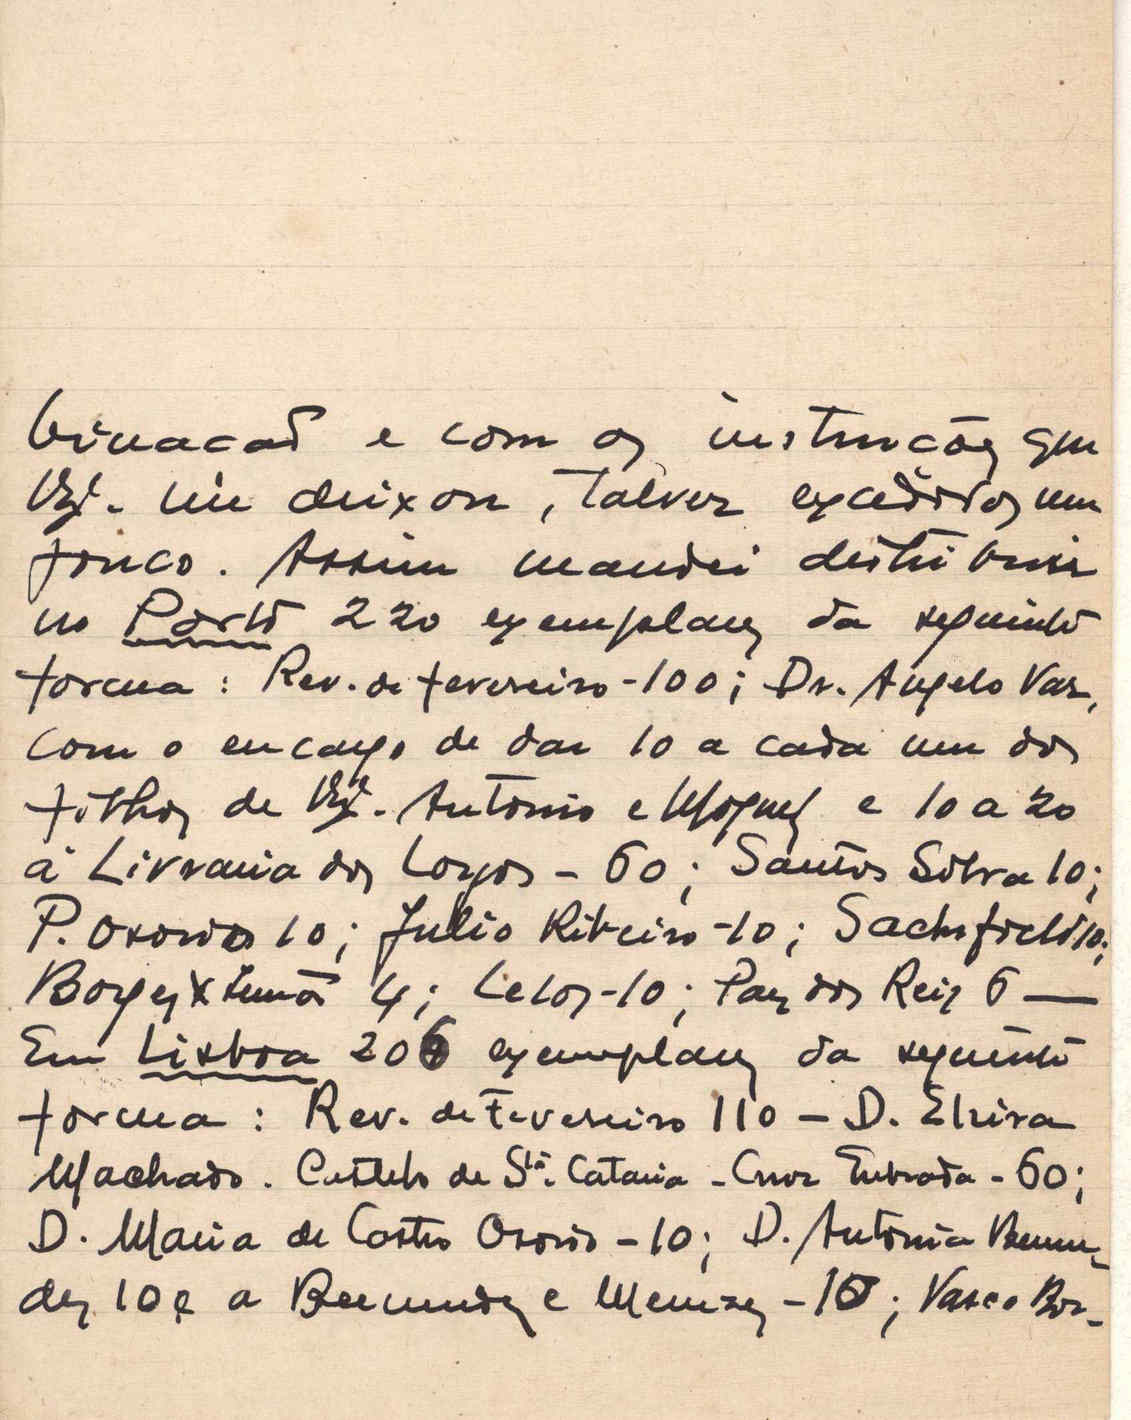 binação e com as instrucões que
V. Ex.ª me deixou, talvez excedidos um
pouco. Assim mandei distribuir
no Porto 220 exemplares da seguinte
forma: Rev. de fevereiro - 100; Dr. Angelo Vaz,
com o encargo de dar 10 a cada um dos
filhos de V. Ex.ª. Antonio e Miguel e 10 a 20
á Livraria dos Loyos - 60; Santos Silva 10;
P. Osorio 10; Julio Ribeiro - 10; 10;
Borges & Irmão 4; Lelos - 10; Paz dos Reis 6 —
Em Lisboa 206 exemplares da seguinte
forma: Rev. de Fevereiro 110 - D. Elzira
Machado. Castelo de Stª. Cataria - Cruz Quebrada - 60;
D. Maria de Castro Osorio - 10; D. Antonia Bermu-
dez 10 e a Bermudez e Menezes - 10; Vasco Bor-